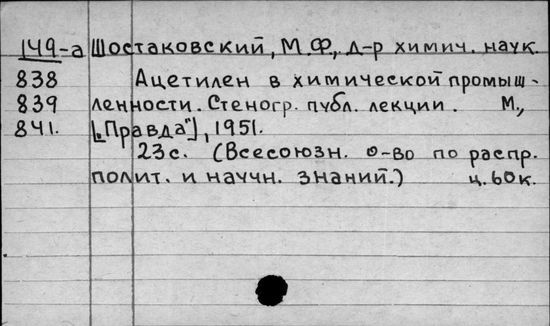 149-а Шостаковский, М.Ф., д-р химич. наук.
838 Ацетилен в химической промыш-
839 ленности. Стеногр. публ. лекции. М.,
841. [„Правда"], 1951.
23с. (Всесоюзн. о-во по распр.
полит. и научн. знаний.) ц. 60к.